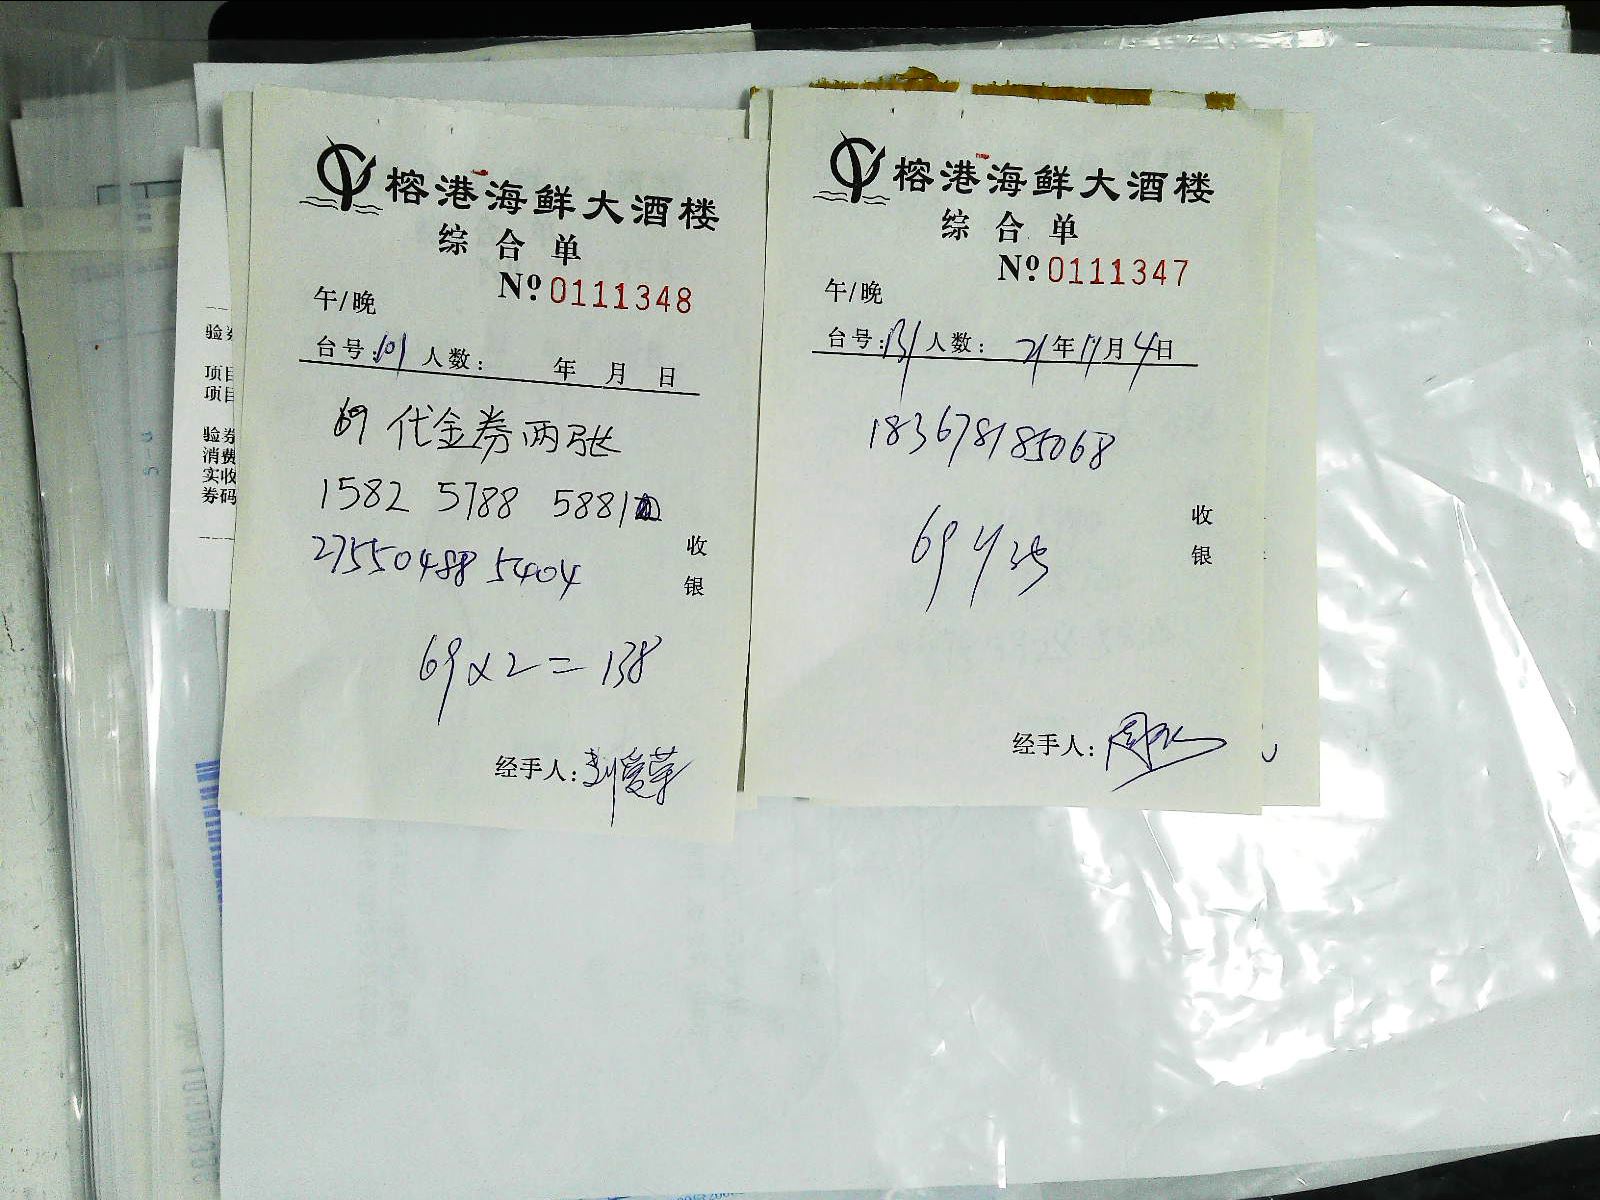 榕港海鲜大酒楼
综合单
№ 0111348
午/晚
台号:101 人数: 年 月 日
69 代金券两张
1582 5788 5881
27550488 5404
收
银
69×2=138
经手人:刘爱荣
榕港海鲜大酒楼
综合单
№ 0111347
午/晚
台号:131 人数: 21年11月4日
183678185068
收
银
69 4张
经手人:
验券
项目
项目
验券
消费
实收
券码